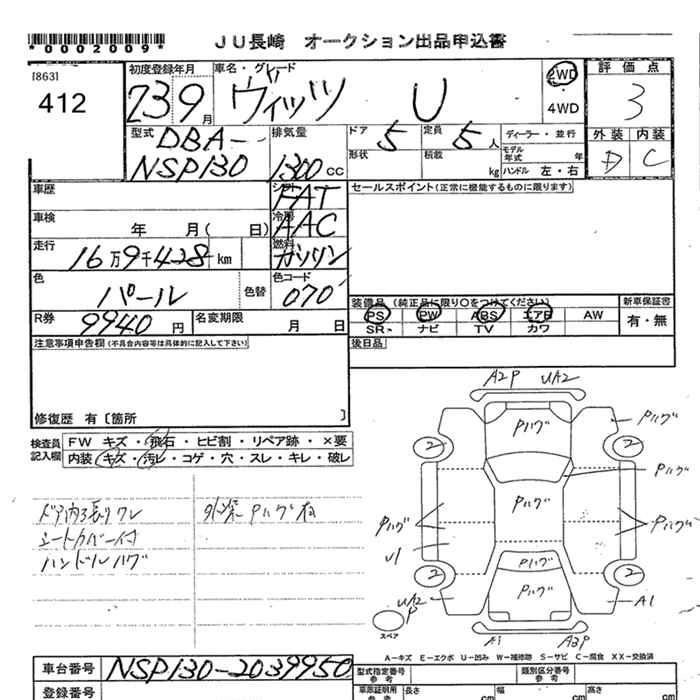 *0002009*
JU長崎 オークション出品申込書
[863]
412
初度登録年月
23 9 月
車名・グレード
ヴィッツ U
2WD
4WD
評価点
3
外装 内装
D C
型式
DBA-
NSP130
排気量
1300 cc
ドア 5
形状
定員 5 人
積載 kg
ディーラー・並行
モデル年式 年
ハンドル 左・右
車歴
シフト FAT
セールスポイント(正常に機能するものに限ります)
車検 年 月( 日)
冷房 AAC
走行 16万9千428 km
燃料 ガソリン
色 パール
色替
色コード 070
R券 9940 円
名変期限 月 日
装備品 (純正品に限り○をつけてください)
PS PW ABS エアB AW
SR ナビ TV カワ
新車保証書
有・無
注意事項申告欄(不具合内容等は具体的に記入して下さい)
後日品
修復歴 有〔箇所 〕
検査員記入欄
FW キズ・飛石・ヒビ割・リペア跡・×要
内装 キズ・汚レ・コゲ・穴・スレ・キレ・破レ
シートカバー付
ハンドルハゲ
外装 Pハゲ有
A2P UA2
Pハゲ
Pハゲ
2
2
Pハゲ
Pハゲ
Pハゲ
Pハゲ
U1
Pハゲ
Pハゲ
2
2
UA2
P
A1
スペア
A1
A2P
A-キズ E-エクボ U-凹み W-補修跡 S-サビ C-腐食 XX-交換済
車台番号 NSP130-2039950
型式指定番号 参考
類別区分番号 参考
登録番号
車庫証明用 参考
長さ cm
幅 cm
高さ cm